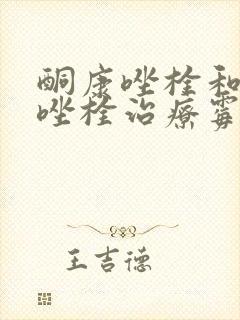 酮康唑栓和
唑栓治疗霉
王吉德